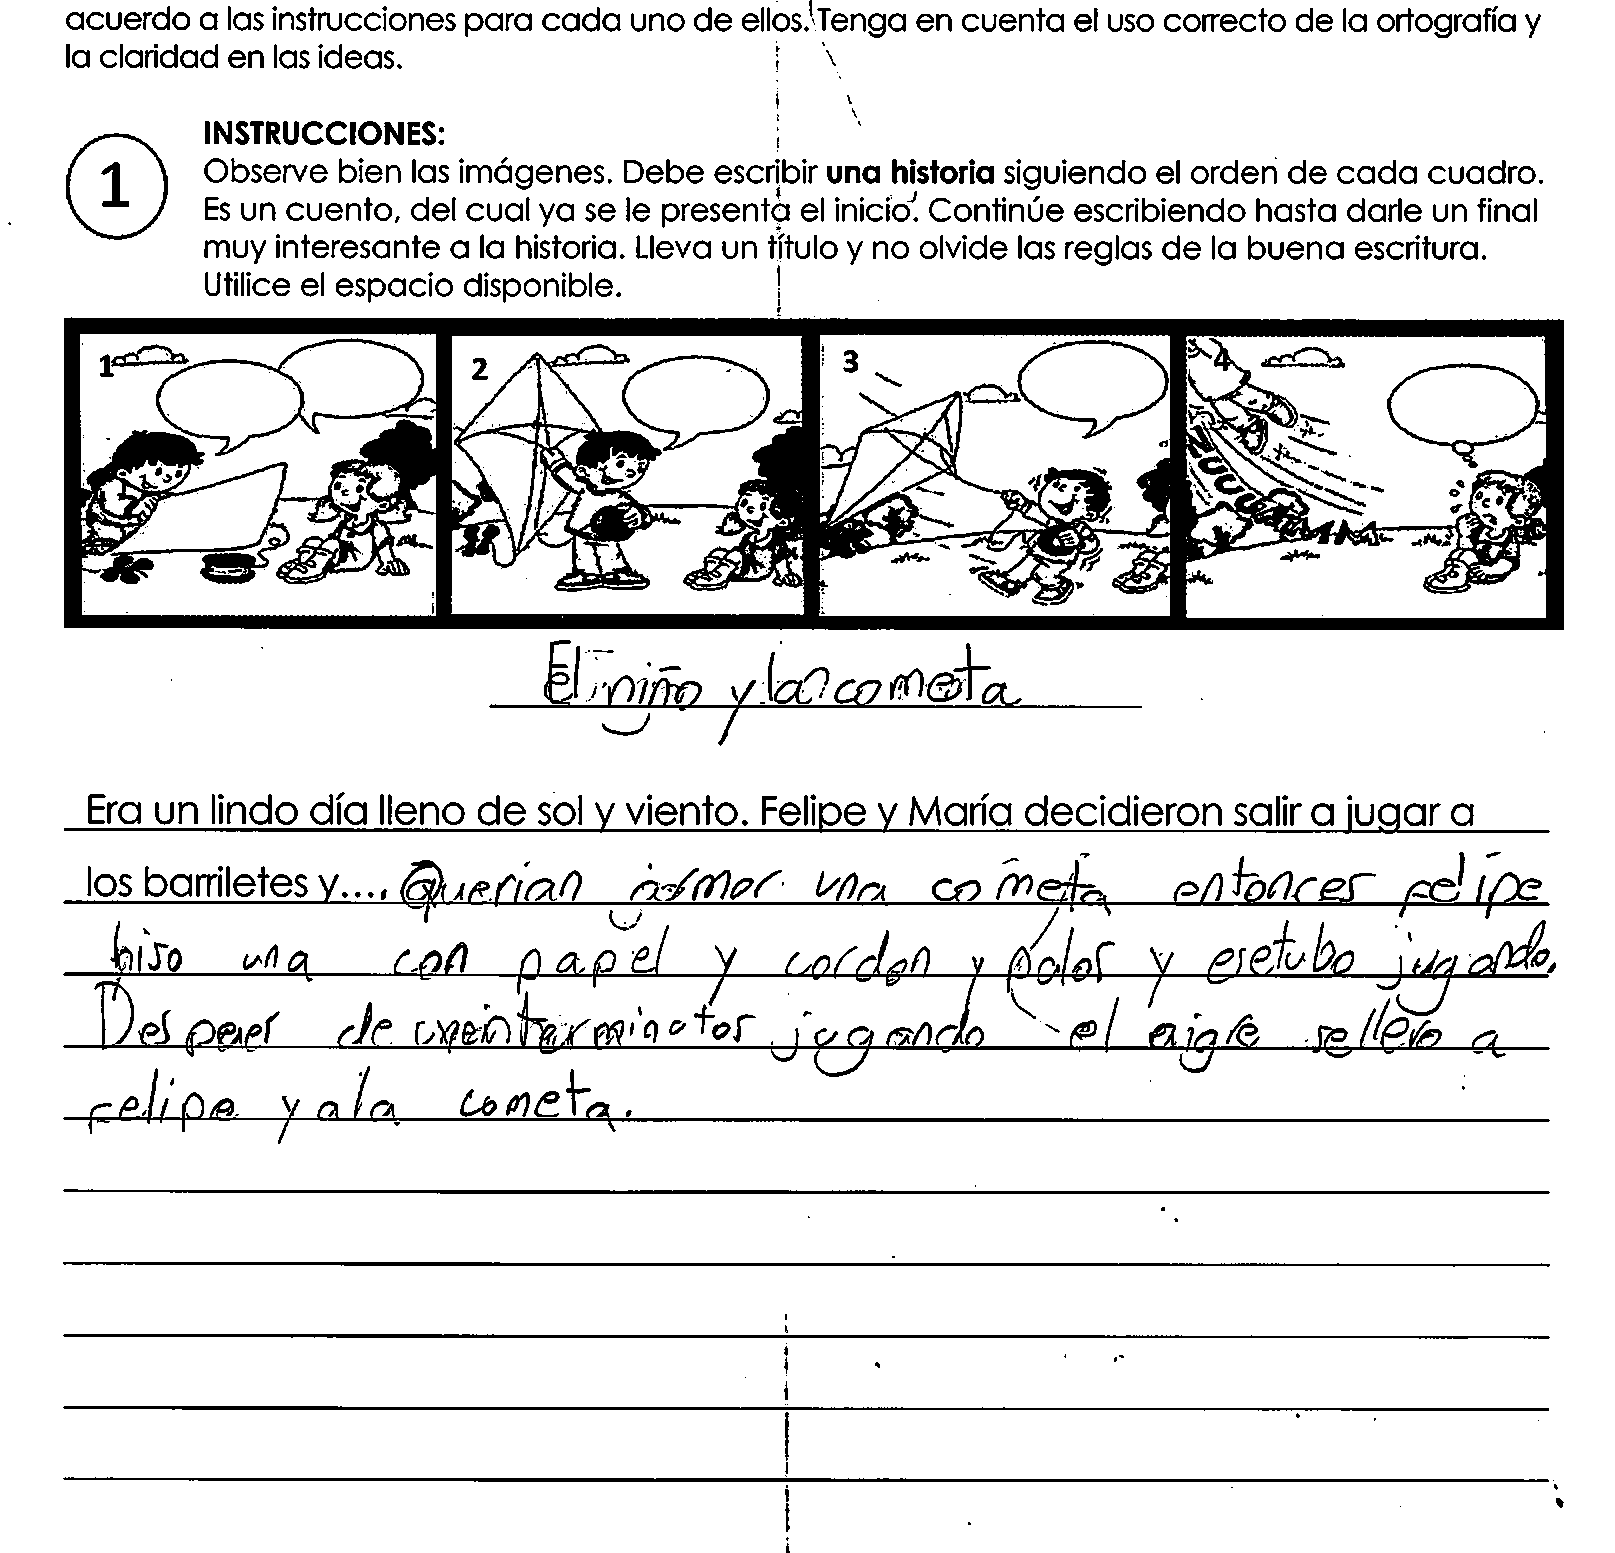 acuerdo a las instrucciones para cada uno de ellos. Tenga en cuenta el uso correcto de la ortografía y
la claridad en las ideas.
INSTRUCCIONES:
1
Observe bien las imágenes. Debe escribir una historia siguiendo el orden de cada cuadro.
Es un cuento, del cual ya se le presenta el inicio. Continúe escribiendo hasta darle un final
muy interesante a la historia. Lleva un título y no olvide las reglas de la buena escritura.
Utilice el espacio disponible.
1 2 3 4
El niño y la cometa
Era un lindo día lleno de sol y viento. Felipe y María decidieron salir a jugar a
los barriletes y.... Querian armar una cometa entonces felipe
hiso una con papel y cordon y palos y esetubo jugando.
Despues de jugando el aigre se llevo a
felipe y a la cometa.